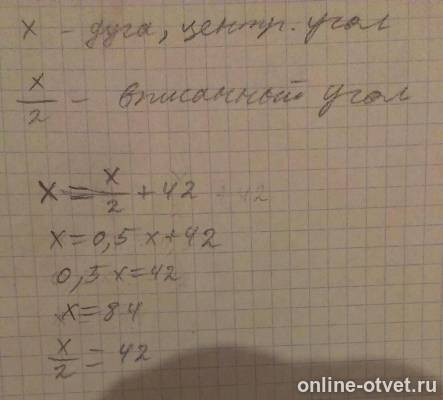 x - дуга, центр. угол
x/2 - вписанный угол
x = x/2 + 42 + 42
x = 0,5x + 42
0,5x = 42
x = 84
x/2 = 42
online-otvet.ru